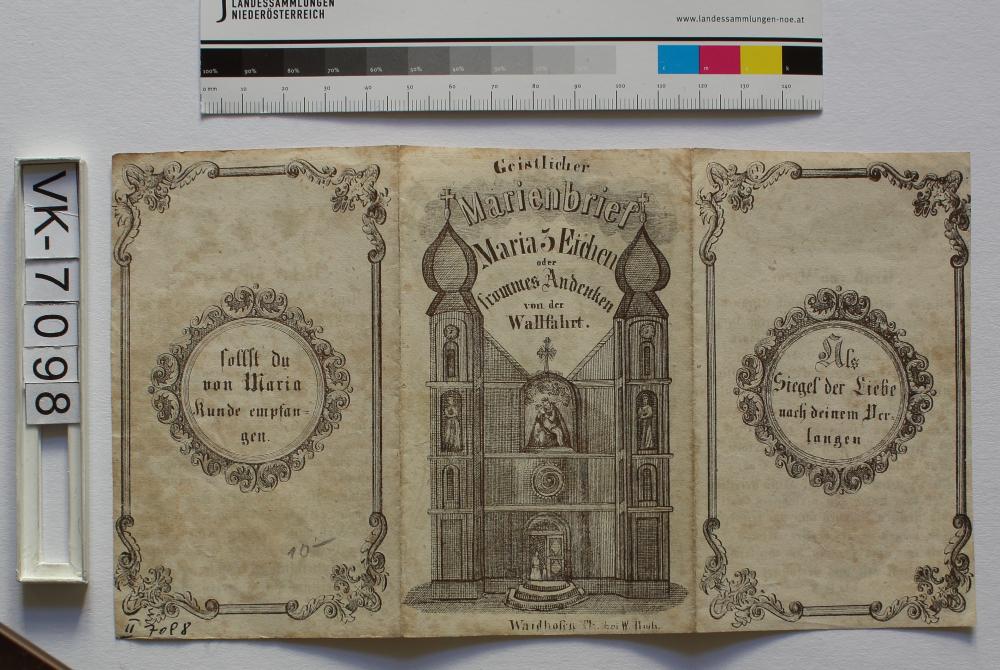 LANDESSAMMLUNGEN
NIEDERÖSTERREICH
www.landessammlungen-noe.at
100% 90% 80% 70% 60% 50% 40% 30% 20% 10% c m y k
0 mm 10 20 30 40 50 60 70 80 90 100 110 120 130 140
VK-7098
sollst du
von Maria
Kunde empfan=
gen.
10-
II 7098
Geistlicher
Marienbrief
Maria 3 Eichen
oder
frommes Andenken
von der
Wallfahrt.
Waidhofen Th. bei W.
Als
Siegel der Liebe
nach deinem Ver-
langen